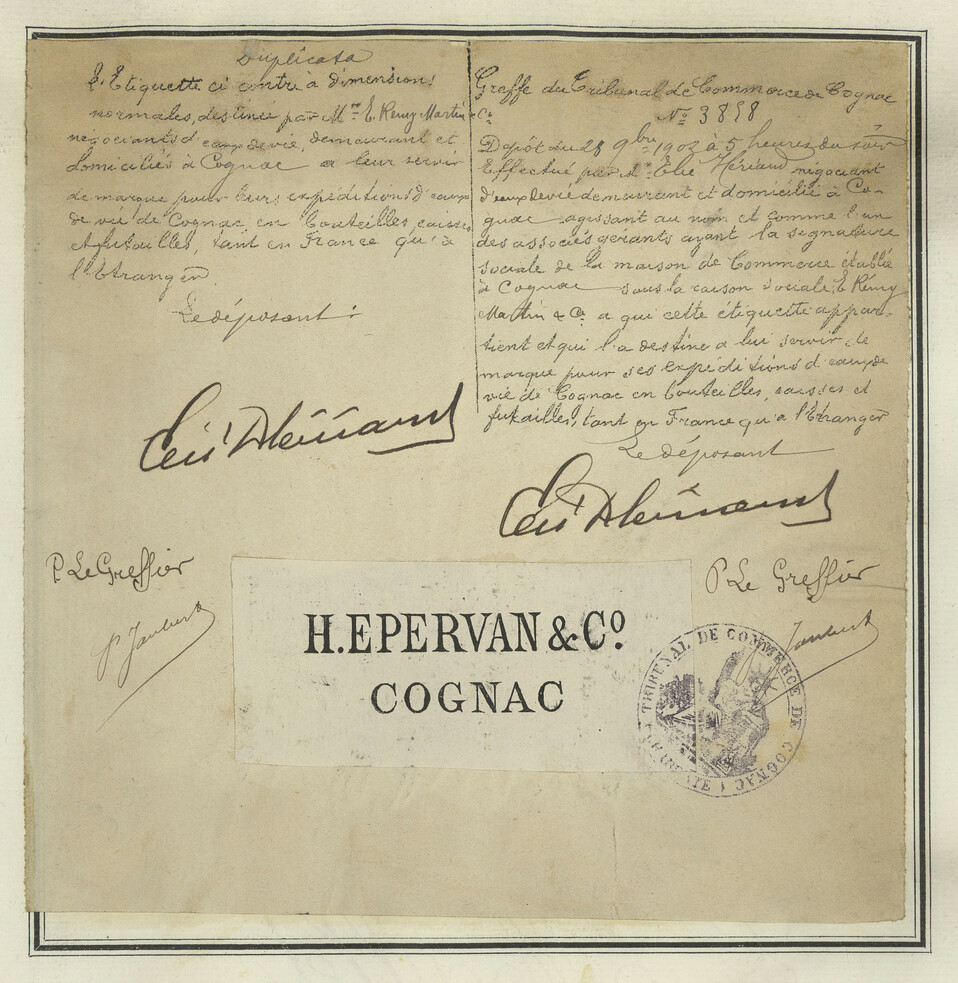 Duplicata
L'Etiquette ci contre à dimensions
normales, destinée par MM. E. Rémy Martin & Co
négociants d'eaux de vie, demeurant et
domiciliés à Cognac a leur servir
de marque pour leurs expéditions d'eaux
de vie de Cognac en bouteilles, caisses
et futailles, tant en France qu'à
l'Etranger.
Le déposant :
P. Le Greffier
Greffe du Tribunal de Commerce de Cognac
No 3858
Dépôt du 28 9bre 1902 à 5 heures du soir
Effectué par Mr Elie Hériard négociant
d'eaux de vie demeurant et domicilié à Co-
gnac agissant au nom et comme l'un
des associés gérants ayant la signature
sociale de la maison de Commerce établie
à Cognac sous la raison sociale, E. Rémy
Martin & Co. a qui cette étiquette appar-
tient et qui l'a destine a lui servir de
marque pour ses expéditions d'eaux de
vie de Cognac en bouteilles, caisses et
futailles, tant en France qu'a l'Etranger
Le déposant
P. Le Greffier
H. EPERVAN & Co
COGNAC
TRIBUNAL DE COMMERCE DE COGNAC